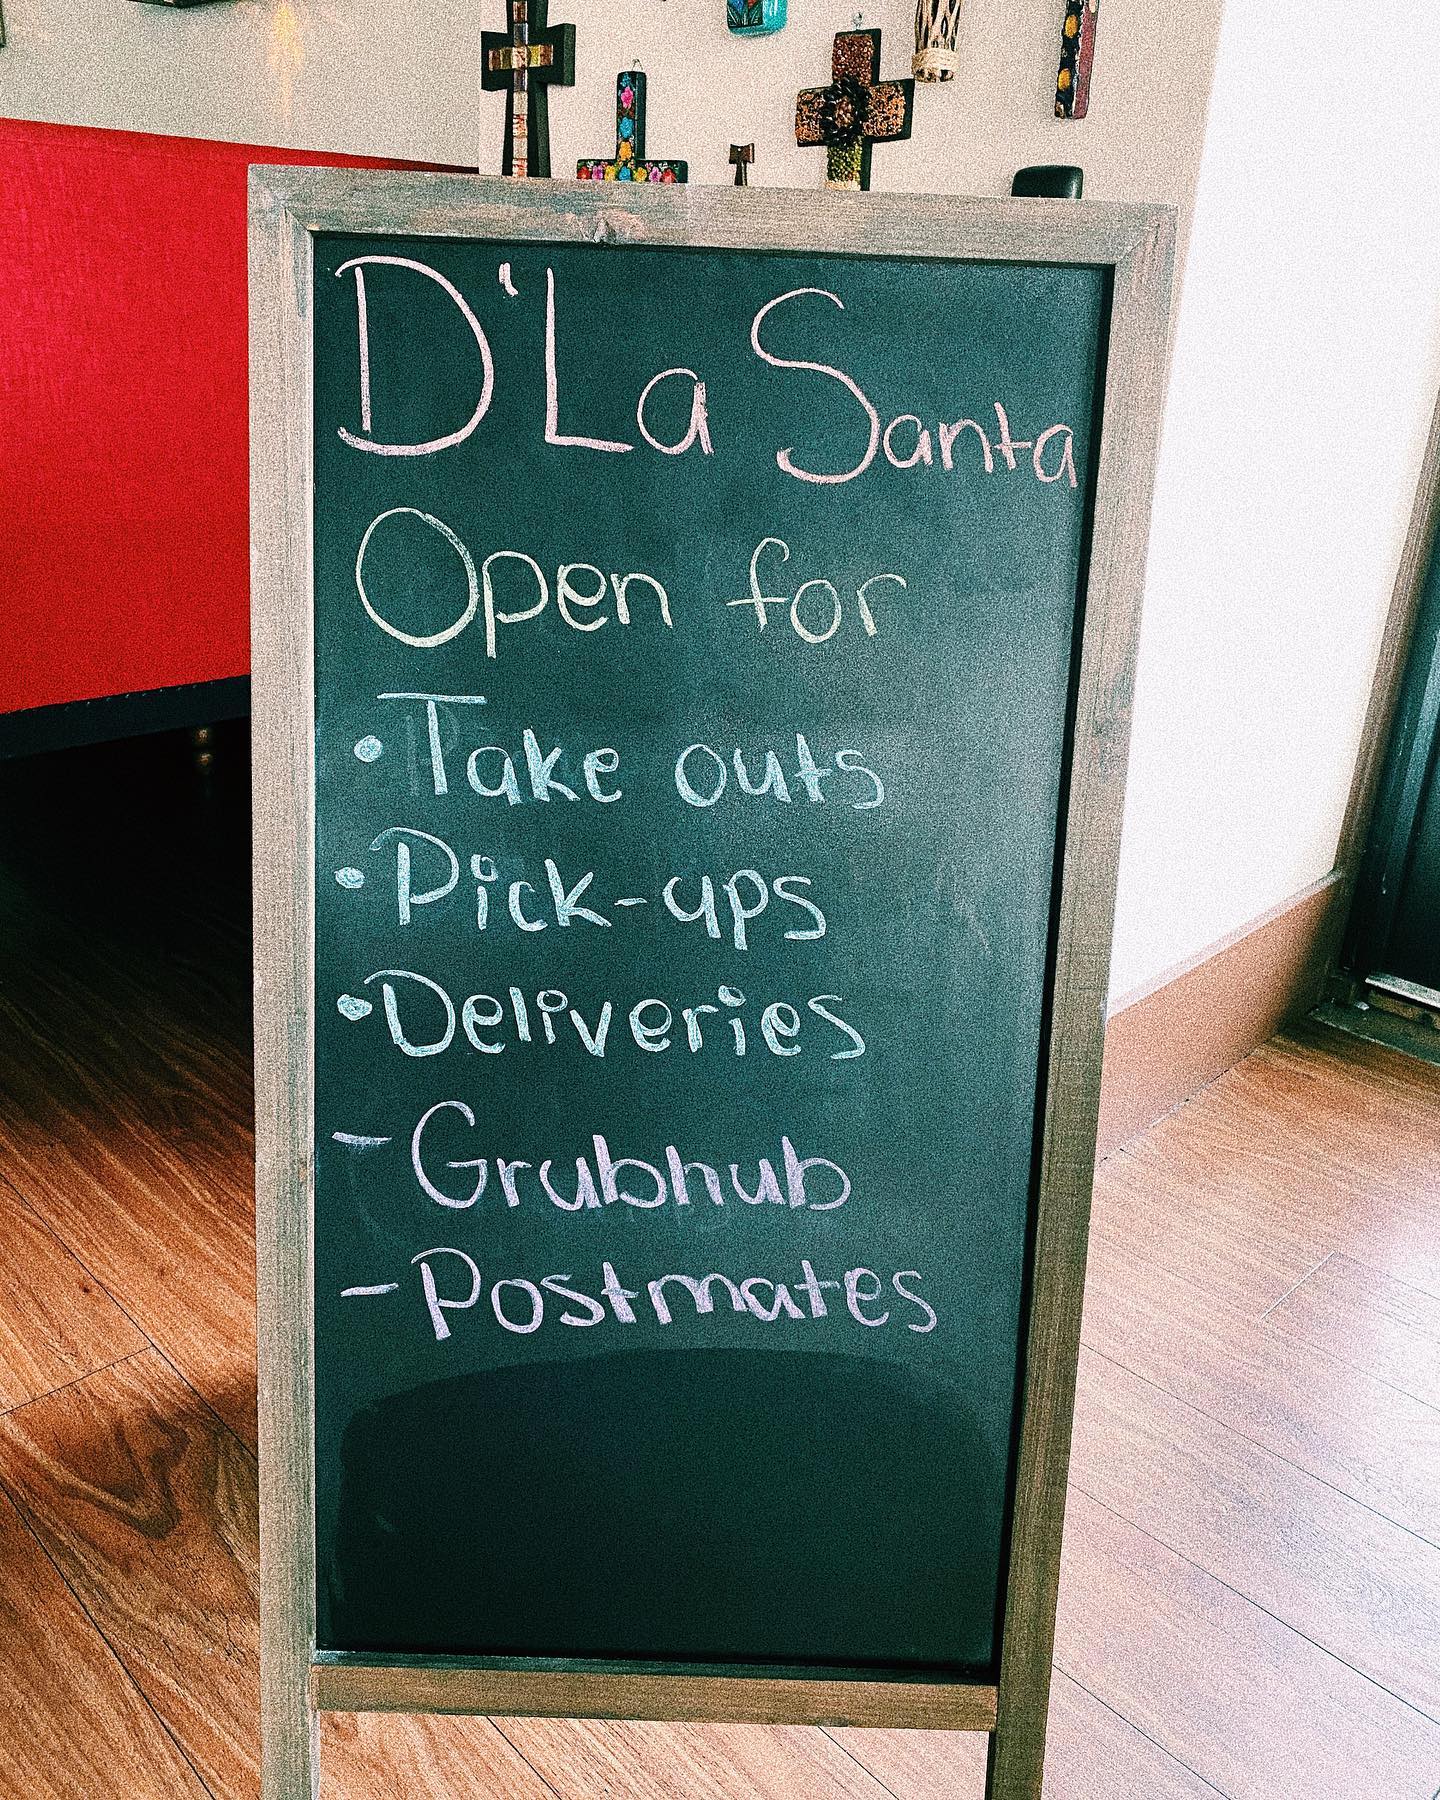 D'La Santa
Open for
• Take outs
• Pick-ups
• Deliveries
- Grubhub
- Postmates